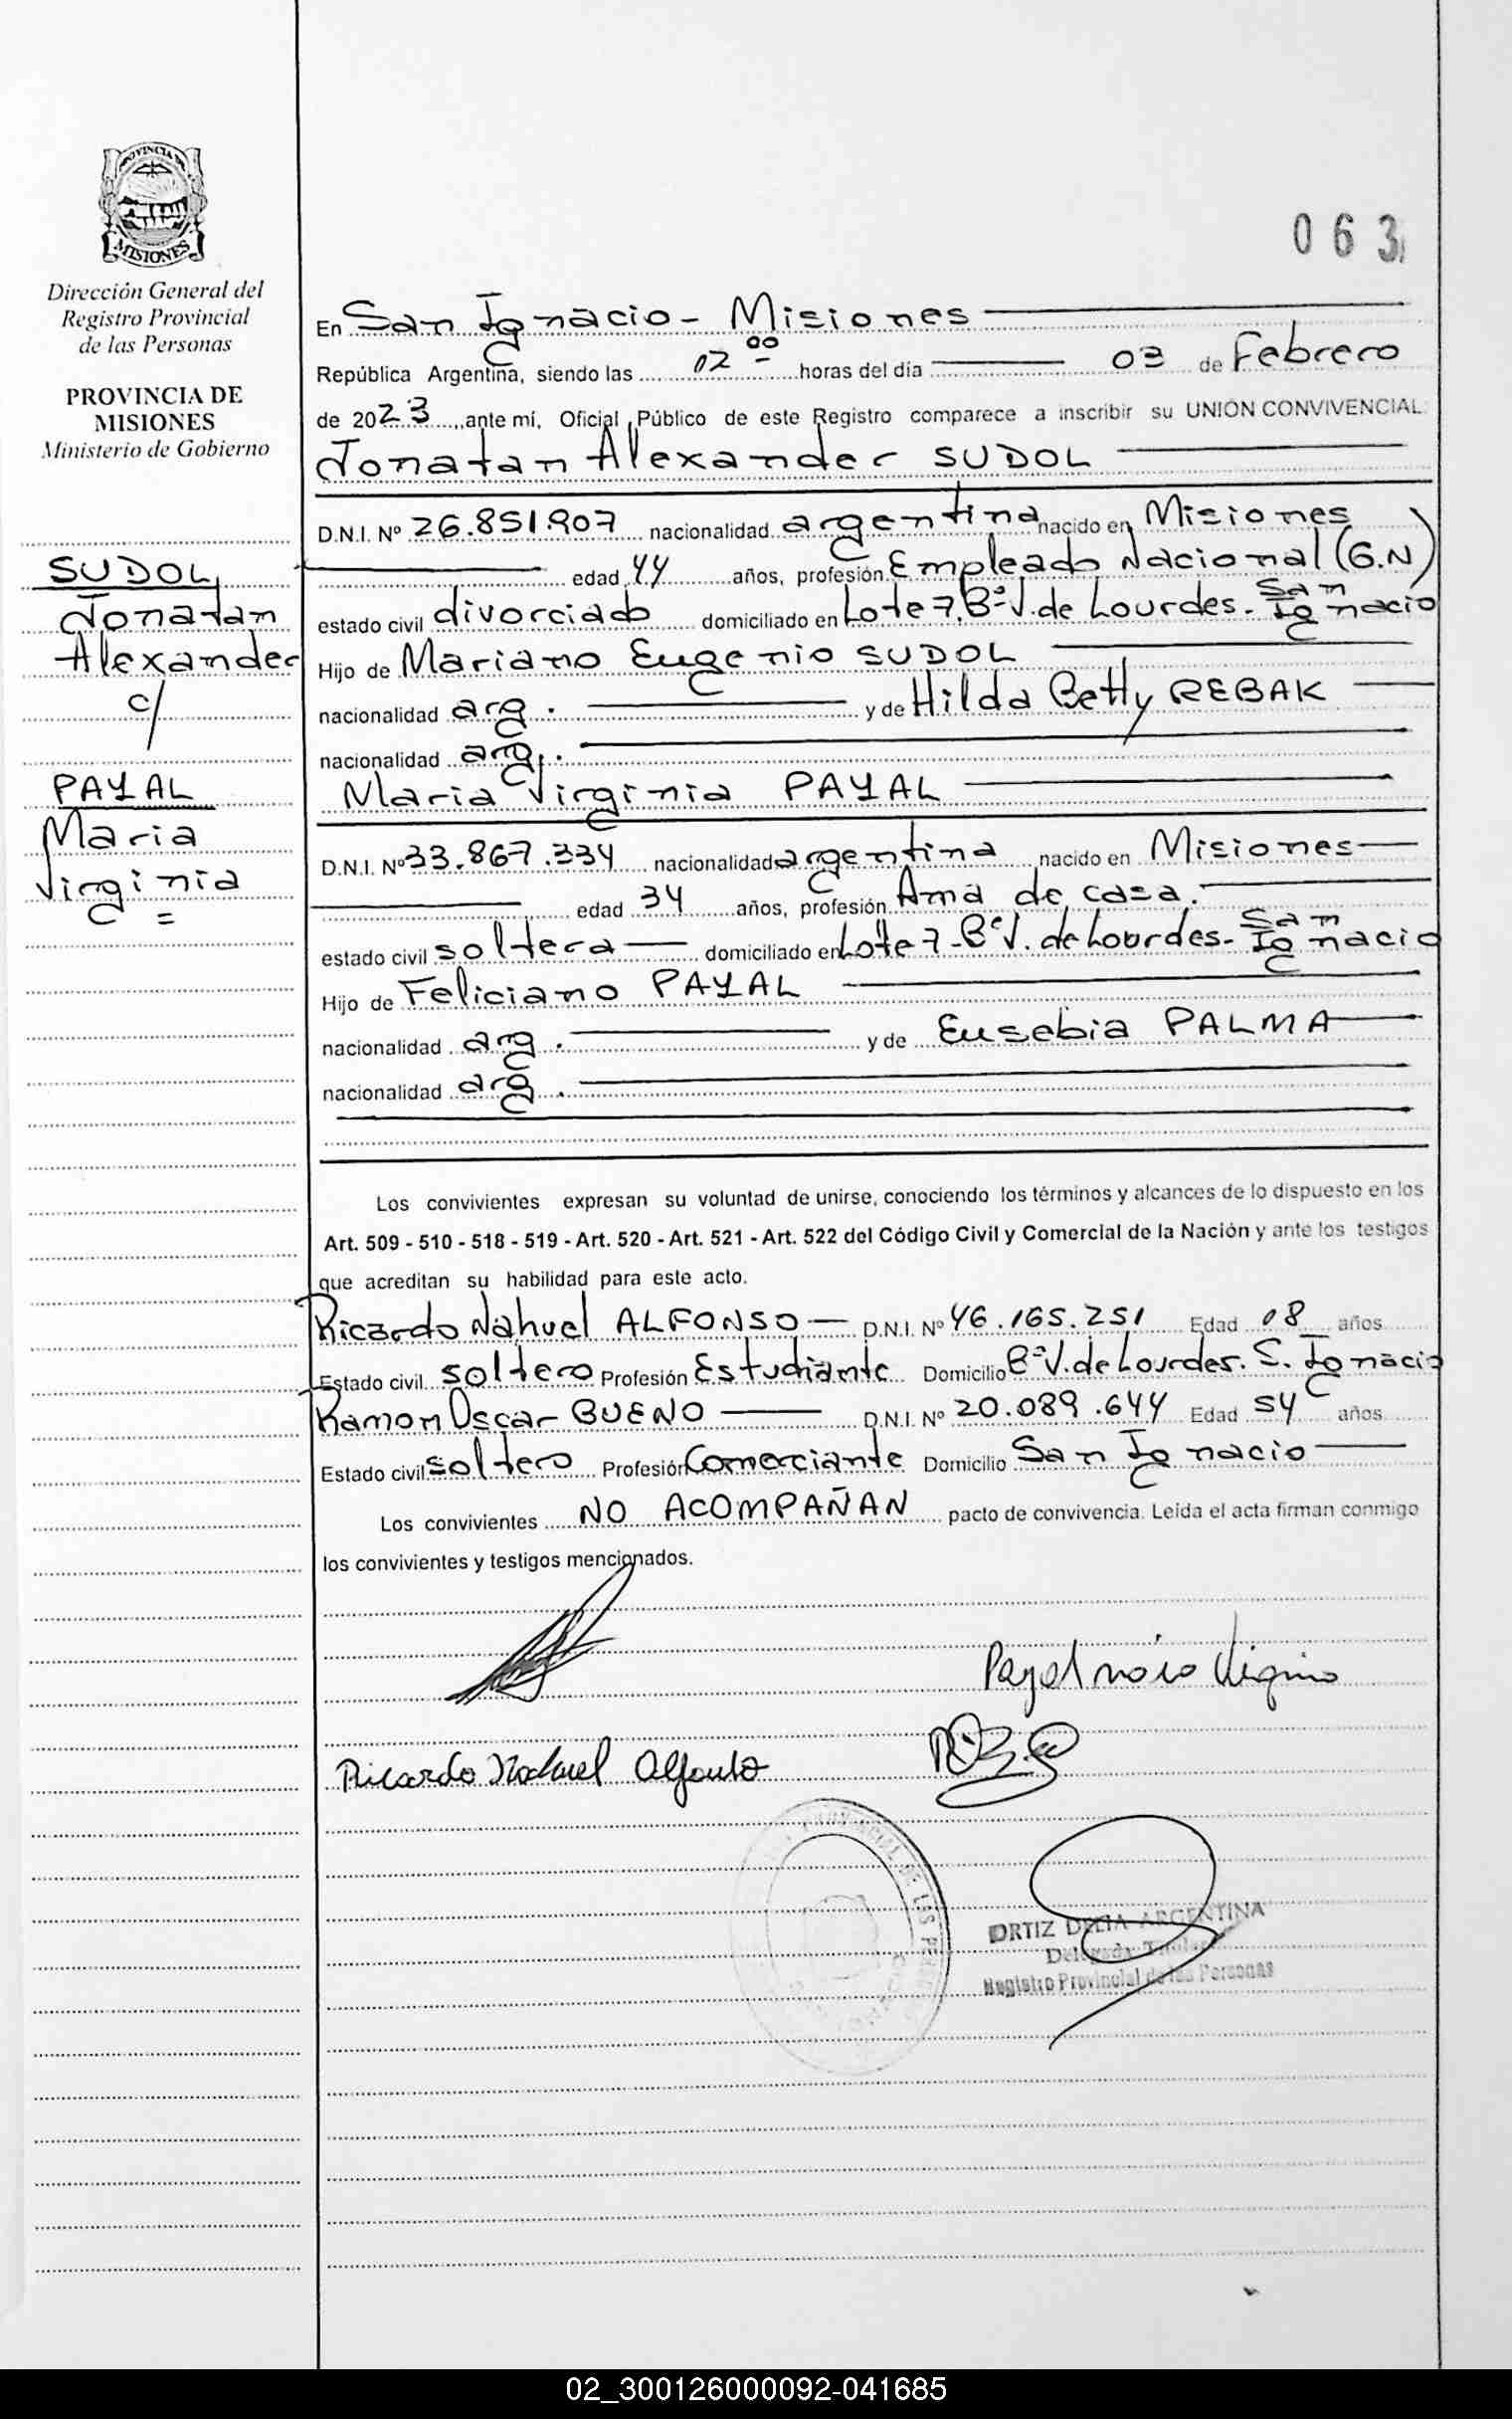 PROVINCIA DE
MISIONES
Dirección General del
Registro Provincial
de las Personas
PROVINCIA DE
MISIONES
Ministerio de Gobierno
SUDOL
Jonatan
Alexander
c/
PAYAL
Maria
Virginia
063
En San Ignacio - Misiones
República Argentina, siendo las 02 00 horas del día 03 de Febrero
de 2023, ante mí, Oficial Público de este Registro comparece a inscribir su UNIÓN CONVIVENCIAL:
Jonatan Alexander SUDOL
D.N.I. Nº 26.851.907 nacionalidad argentina nacido en Misiones
edad 44 años, profesión Empleado Nacional (G.N)
estado civil divorciado domiciliado en Lote 7. Bº V. de Lourdes. San Ignacio
Hijo de Mariano Eugenio SUDOL
nacionalidad arg. y de Hilda Betty REBAK
nacionalidad arg.
Maria Virginia PAYAL
D.N.I. Nº 33.867.334 nacionalidad argentina nacido en Misiones
edad 34 años, profesión Ama de casa.
estado civil soltera domiciliado en Lote 7 - Bº V. de Lourdes - San Ignacio
Hijo de Feliciano PAYAL
nacionalidad arg. y de Eusebia PALMA
nacionalidad arg.
Los convivientes expresan su voluntad de unirse, conociendo los términos y alcances de lo dispuesto en los
Art. 509 - 510 - 518 - 519 - Art. 520 - Art. 521 - Art. 522 del Código Civil y Comercial de la Nación y ante los testigos
que acreditan su habilidad para este acto.
Ricardo Nahuel ALFONSO D.N.I. Nº 46.165.251 Edad 18 años
Estado civil soltero Profesión Estudiante Domicilio Bº V. de Lourdes. S. Ignacio
Ramon Oscar BUENO D.N.I. Nº 20.089.644 Edad 54 años
Estado civil soltero Profesión Comerciante Domicilio San Ignacio
Los convivientes NO ACOMPAÑAN pacto de convivencia. Leída el acta firman conmigo
los convivientes y testigos mencionados.
Payal Maria Virginia
Ricardo Nahuel Alfonso
ORTIZ DELIA ARGENTINA
Delegada Titular
Registro Provincial de las Personas
02_300126000092-041685